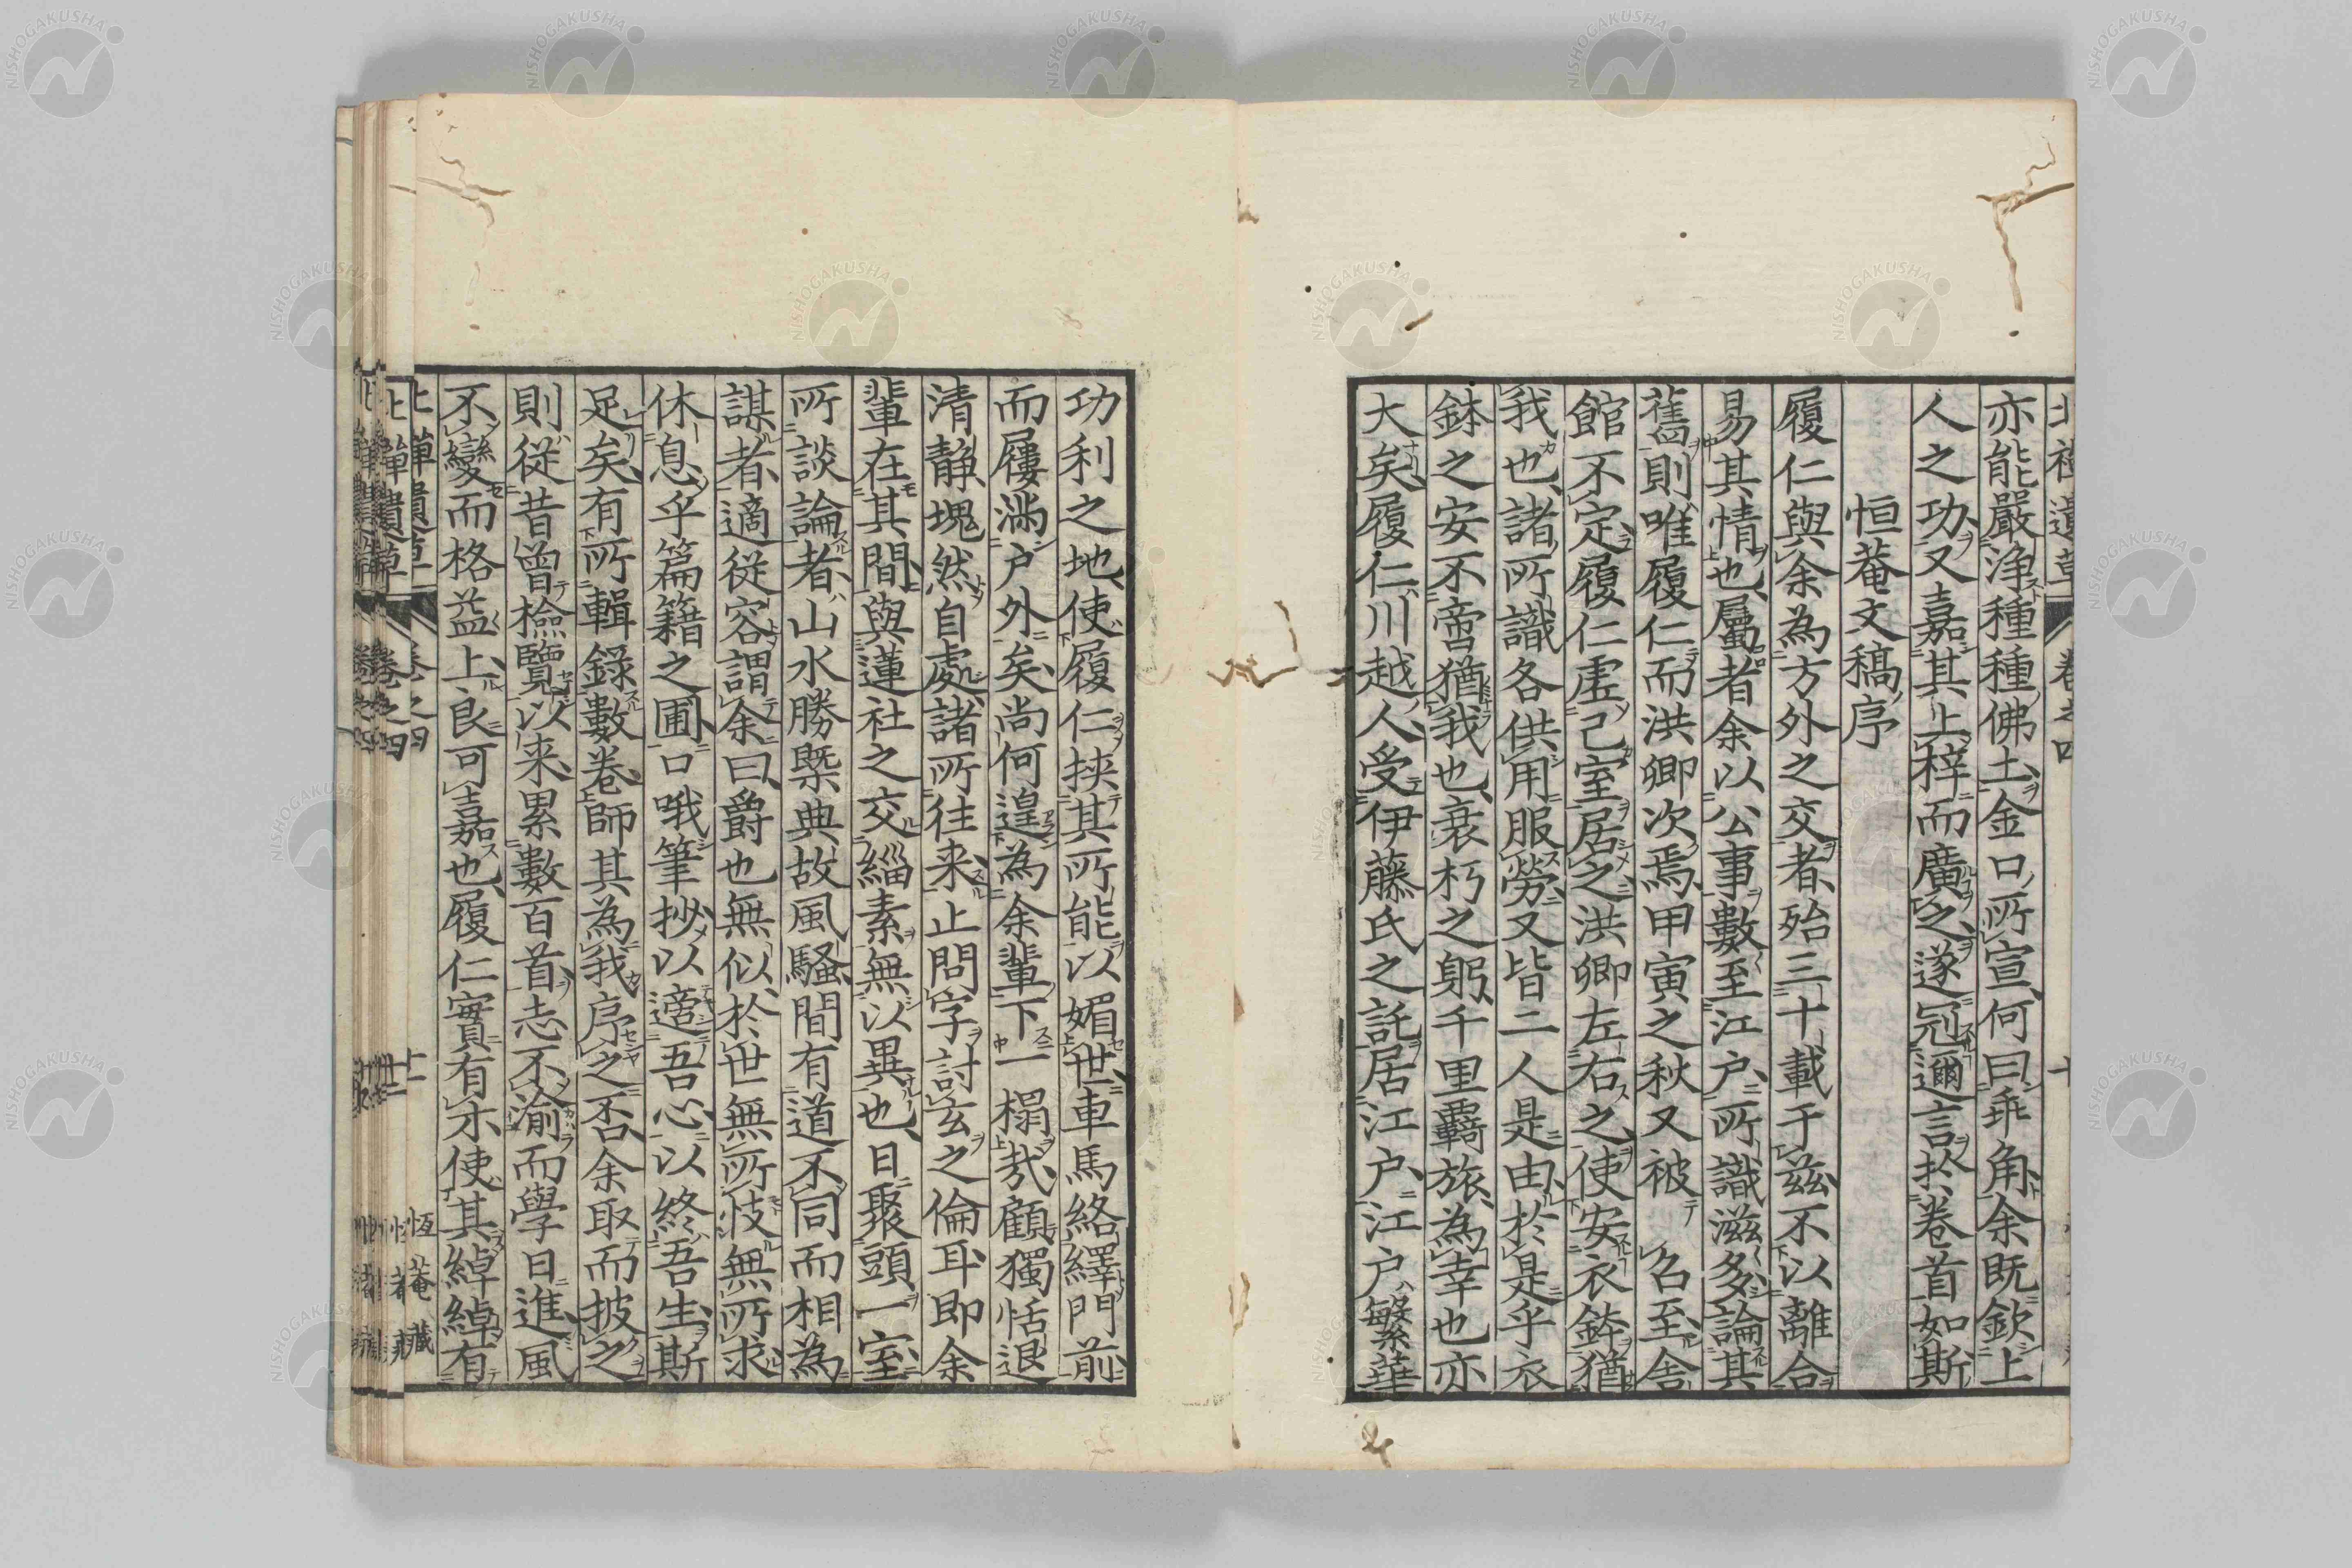 亦能嚴淨種種佛土金口所宣何曰乖角余既欽上
人之功又嘉其上梓而廣之遂冠邇言於卷首如斯
恒菴文稿序
履仁與余為方外之交者殆三十載于兹不以離合
易其情也屬者余以公事數至江户所識滋多論其
舊則唯履仁而洪卿次焉甲寅之秋又被 召至舎
館不定履仁虚己室居之洪卿左右之使安衣鉢猶
我也諸所識各供用服勞又皆二人是由於是乎衣
鉢之安不啻猶我也衰朽之躬千里羇旅為幸也亦
大矣履仁川越人受伊藤氏之託居江户江户繁華
功利之地使履仁挾其所能以媚世車馬絡繹門前
而屨滿户外矣尚何遑為余輩下一榻㢤顧獨恬退
清静塊然自處諸所往来止問字討玄之倫耳即余
輩在其間與蓮社之交緇素無以異也日聚頭一室
所談論者山水勝槩典故風騷間有道不同而相為
謀者適從容謂余曰爵也無似於世無所忮無所求
休息乎篇籍之圃口哦筆抄以適吾心以終吾生斯
足矣有所輯錄數卷師其為我序之否余取而披之
則從昔曾檢覽以来累數百首志不渝而學日進風
不變而格益上良可嘉也履仁實有尓使其綽綽有
北禅遺草 卷之四
恆菴藏